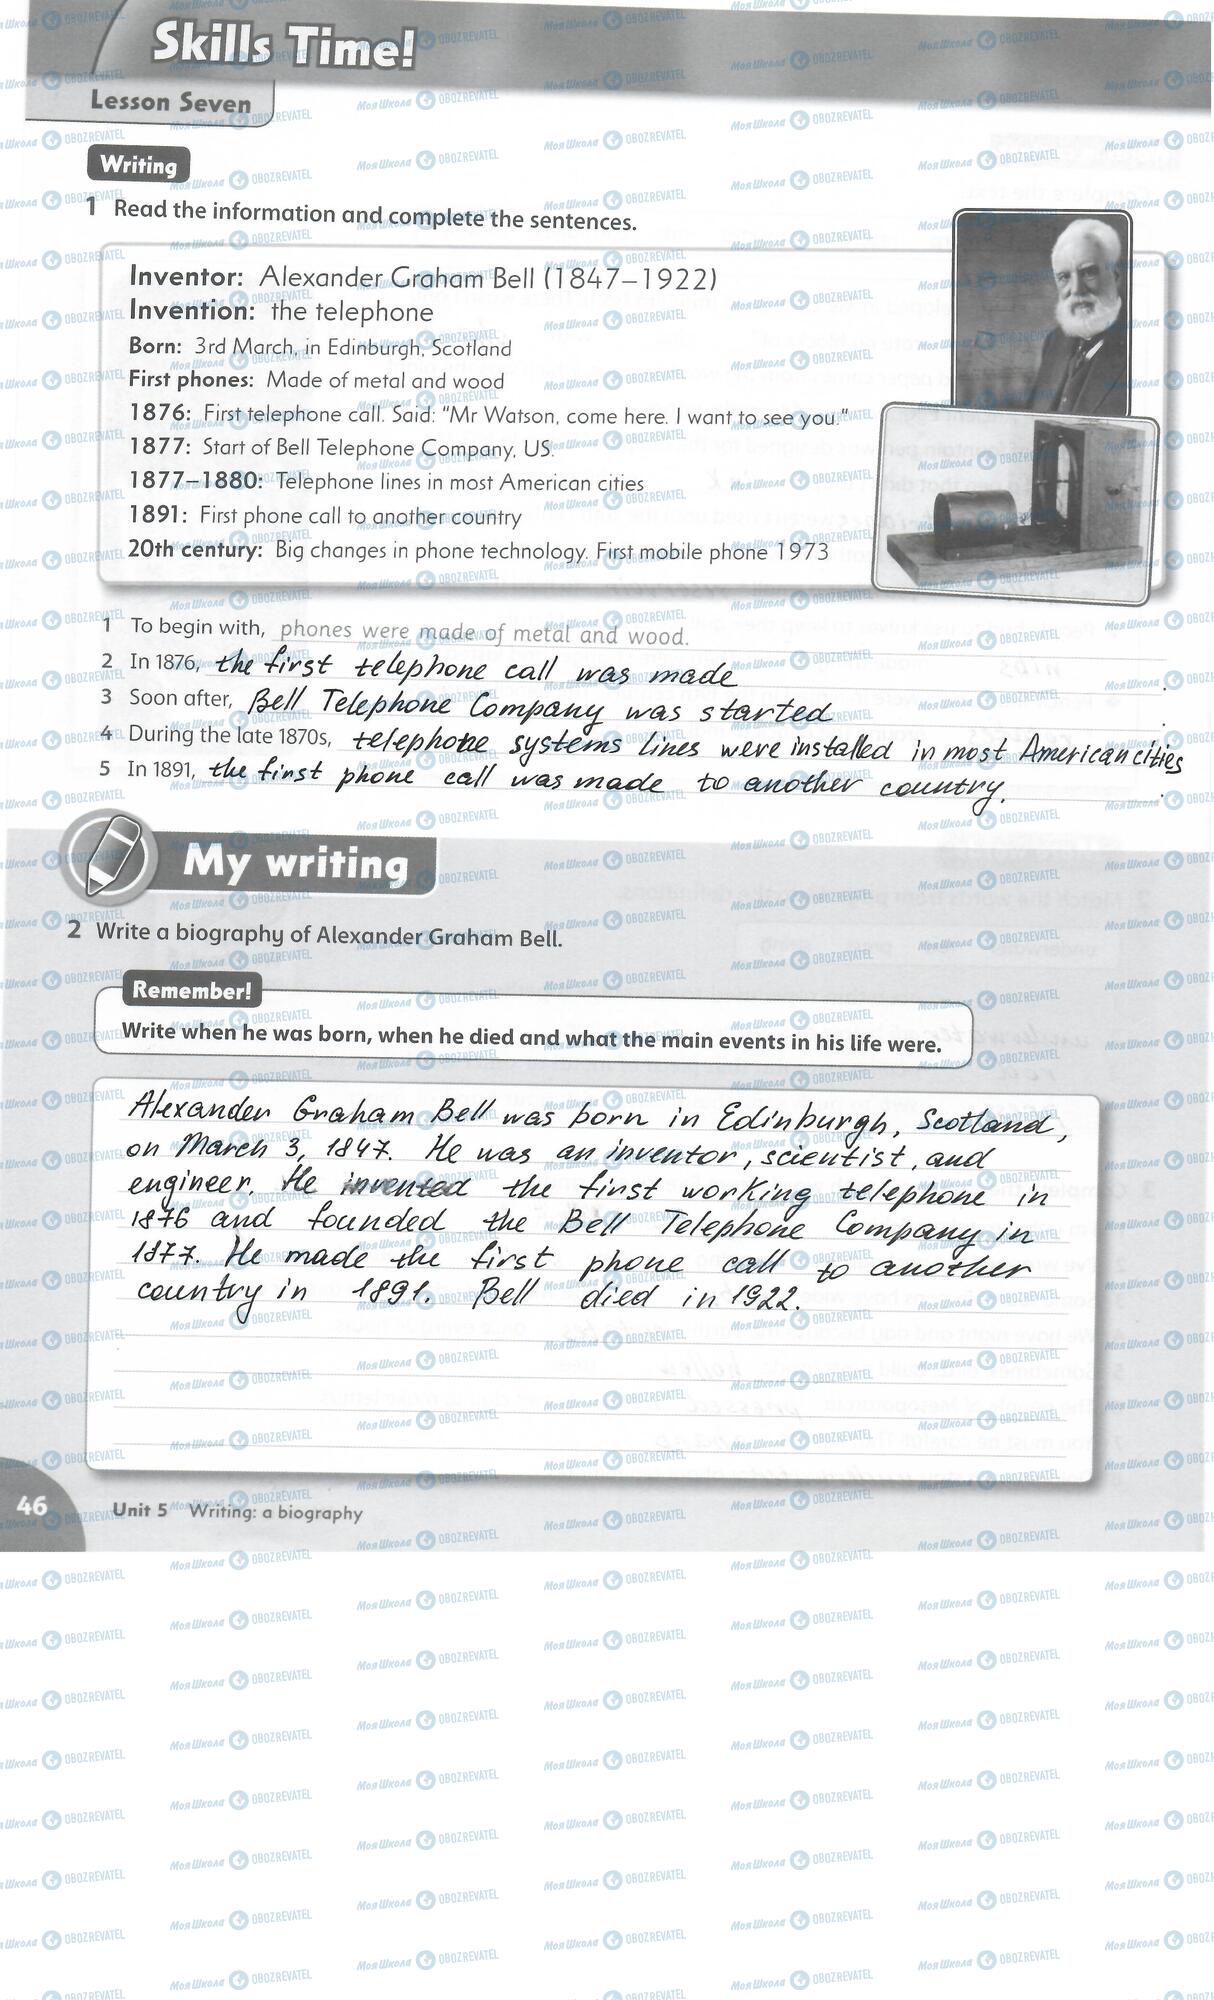 Skills Time!
Lesson Seven
Writing
1 Read the information and complete the sentences.
Inventor: Alexander Graham Bell (1847–1922)
Invention: the telephone
Born: 3rd March, in Edinburgh, Scotland
First phones: Made of metal and wood
1876: First telephone call. Said: "Mr Watson, come here. I want to see you."
1877: Start of Bell Telephone Company, US.
1877–1880: Telephone lines in most American cities
1891: First phone call to another country
20th century: Big changes in phone technology. First mobile phone 1973
1 To begin with, phones were made of metal and wood.
2 In 1876, the first telephone call was made.
3 Soon after, Bell Telephone Company was started.
4 During the late 1870s, telephone systems lines were installed in most American cities
5 In 1891, the first phone call was made to another country.
My writing
2 Write a biography of Alexander Graham Bell.
Remember!
Write when he was born, when he died and what the main events in his life were.
Alexander Graham Bell was born in Edinburgh, Scotland,
on March 3, 1847. He was an inventor, scientist, and
engineer. He invented the first working telephone in
1876 and founded the Bell Telephone Company in
1877. He made the first phone call to another
country in 1891. Bell died in 1922.
46 Unit 5 Writing: a biography
МояШкола OBOZREVATEL